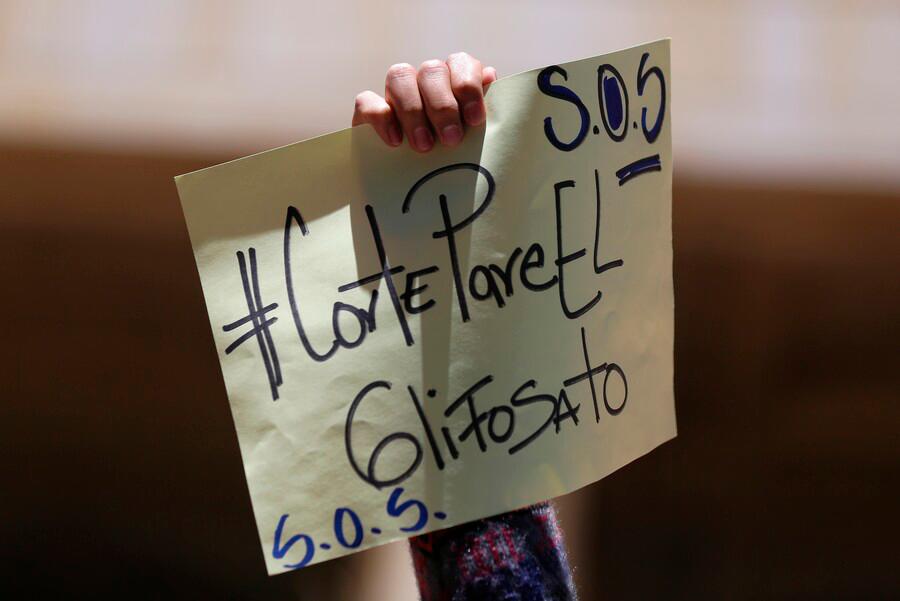 S.O.S
#CortE Pare EL
GliFoSAtO
S.O.S.